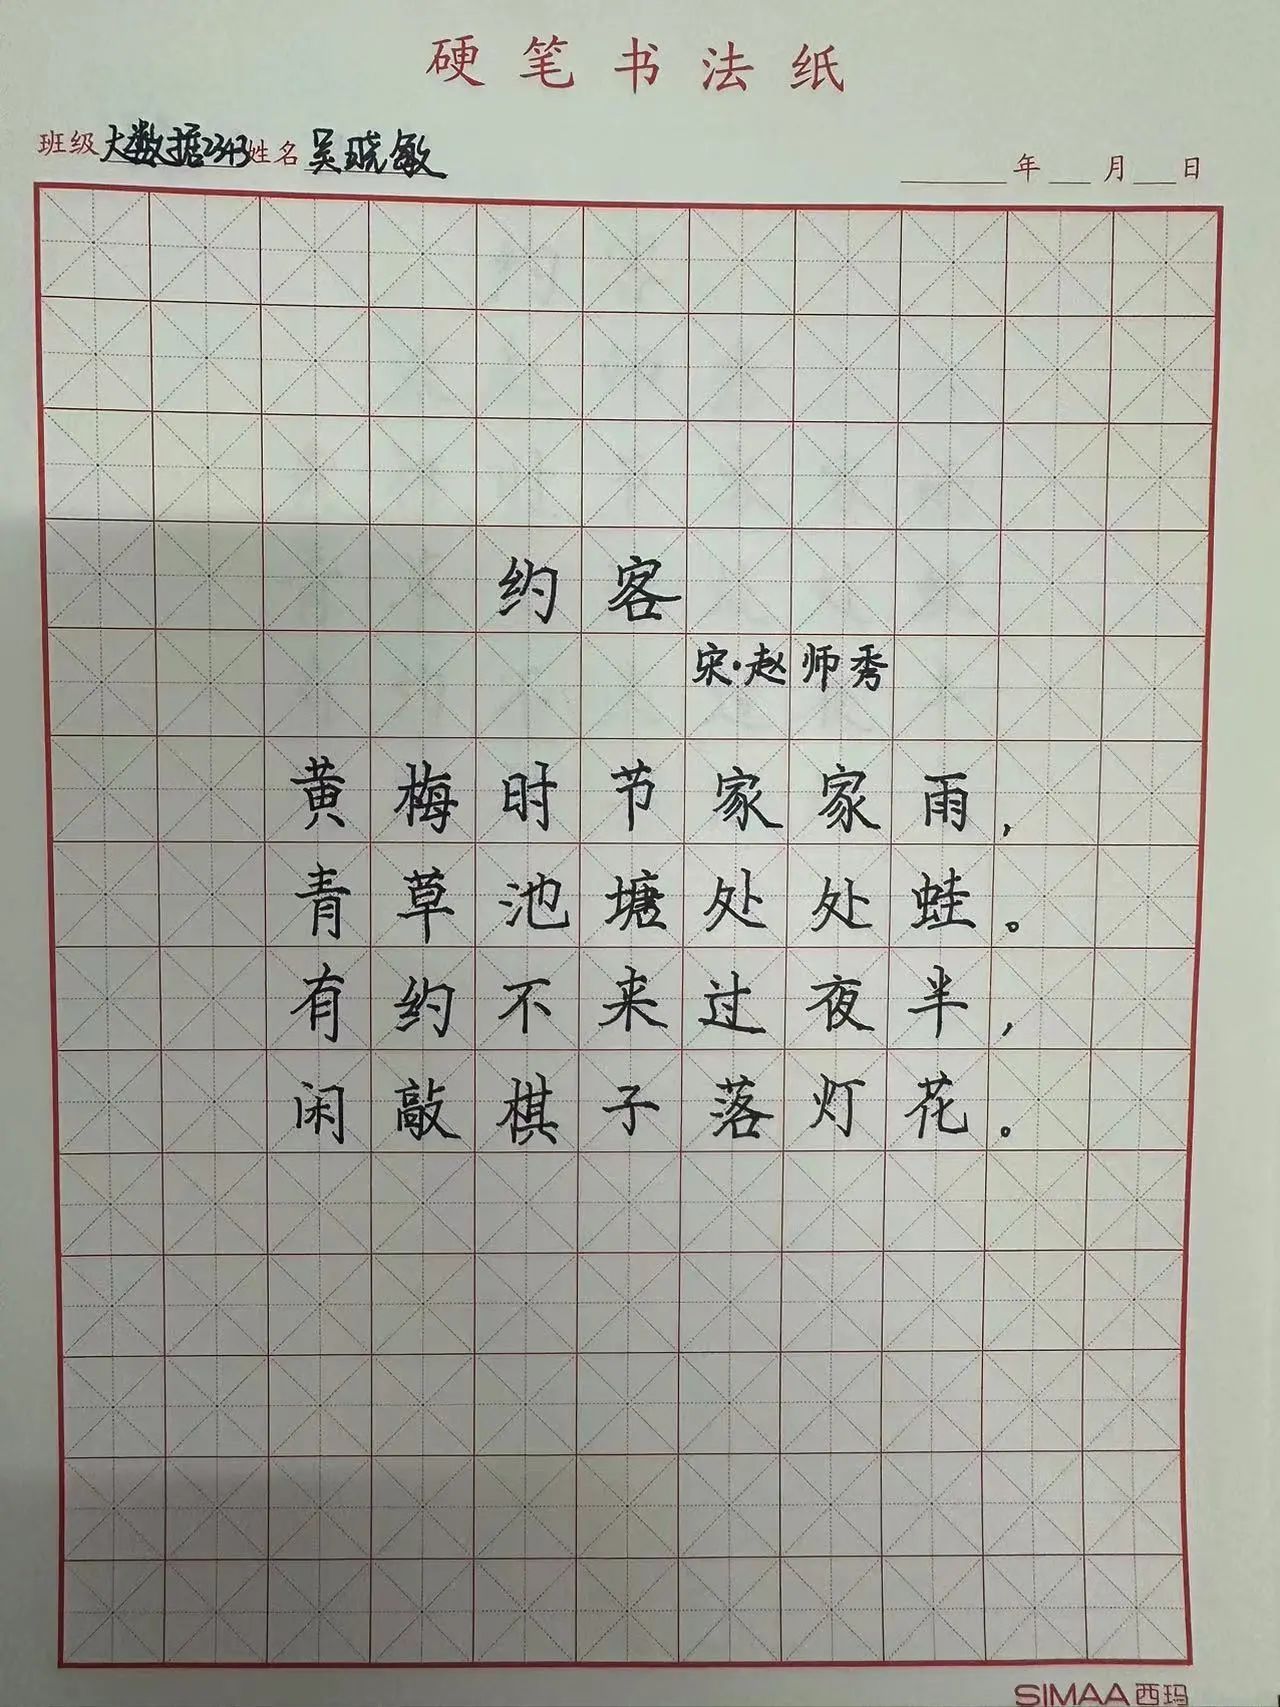 硬笔书法纸
班级 大数据2343 姓名 吴晓敏 年 月 日
约客
宋·赵师秀
黄梅时节家家雨，
青草池塘处处蛙。
有约不来过夜半，
闲敲棋子落灯花。
SIMAA西玛